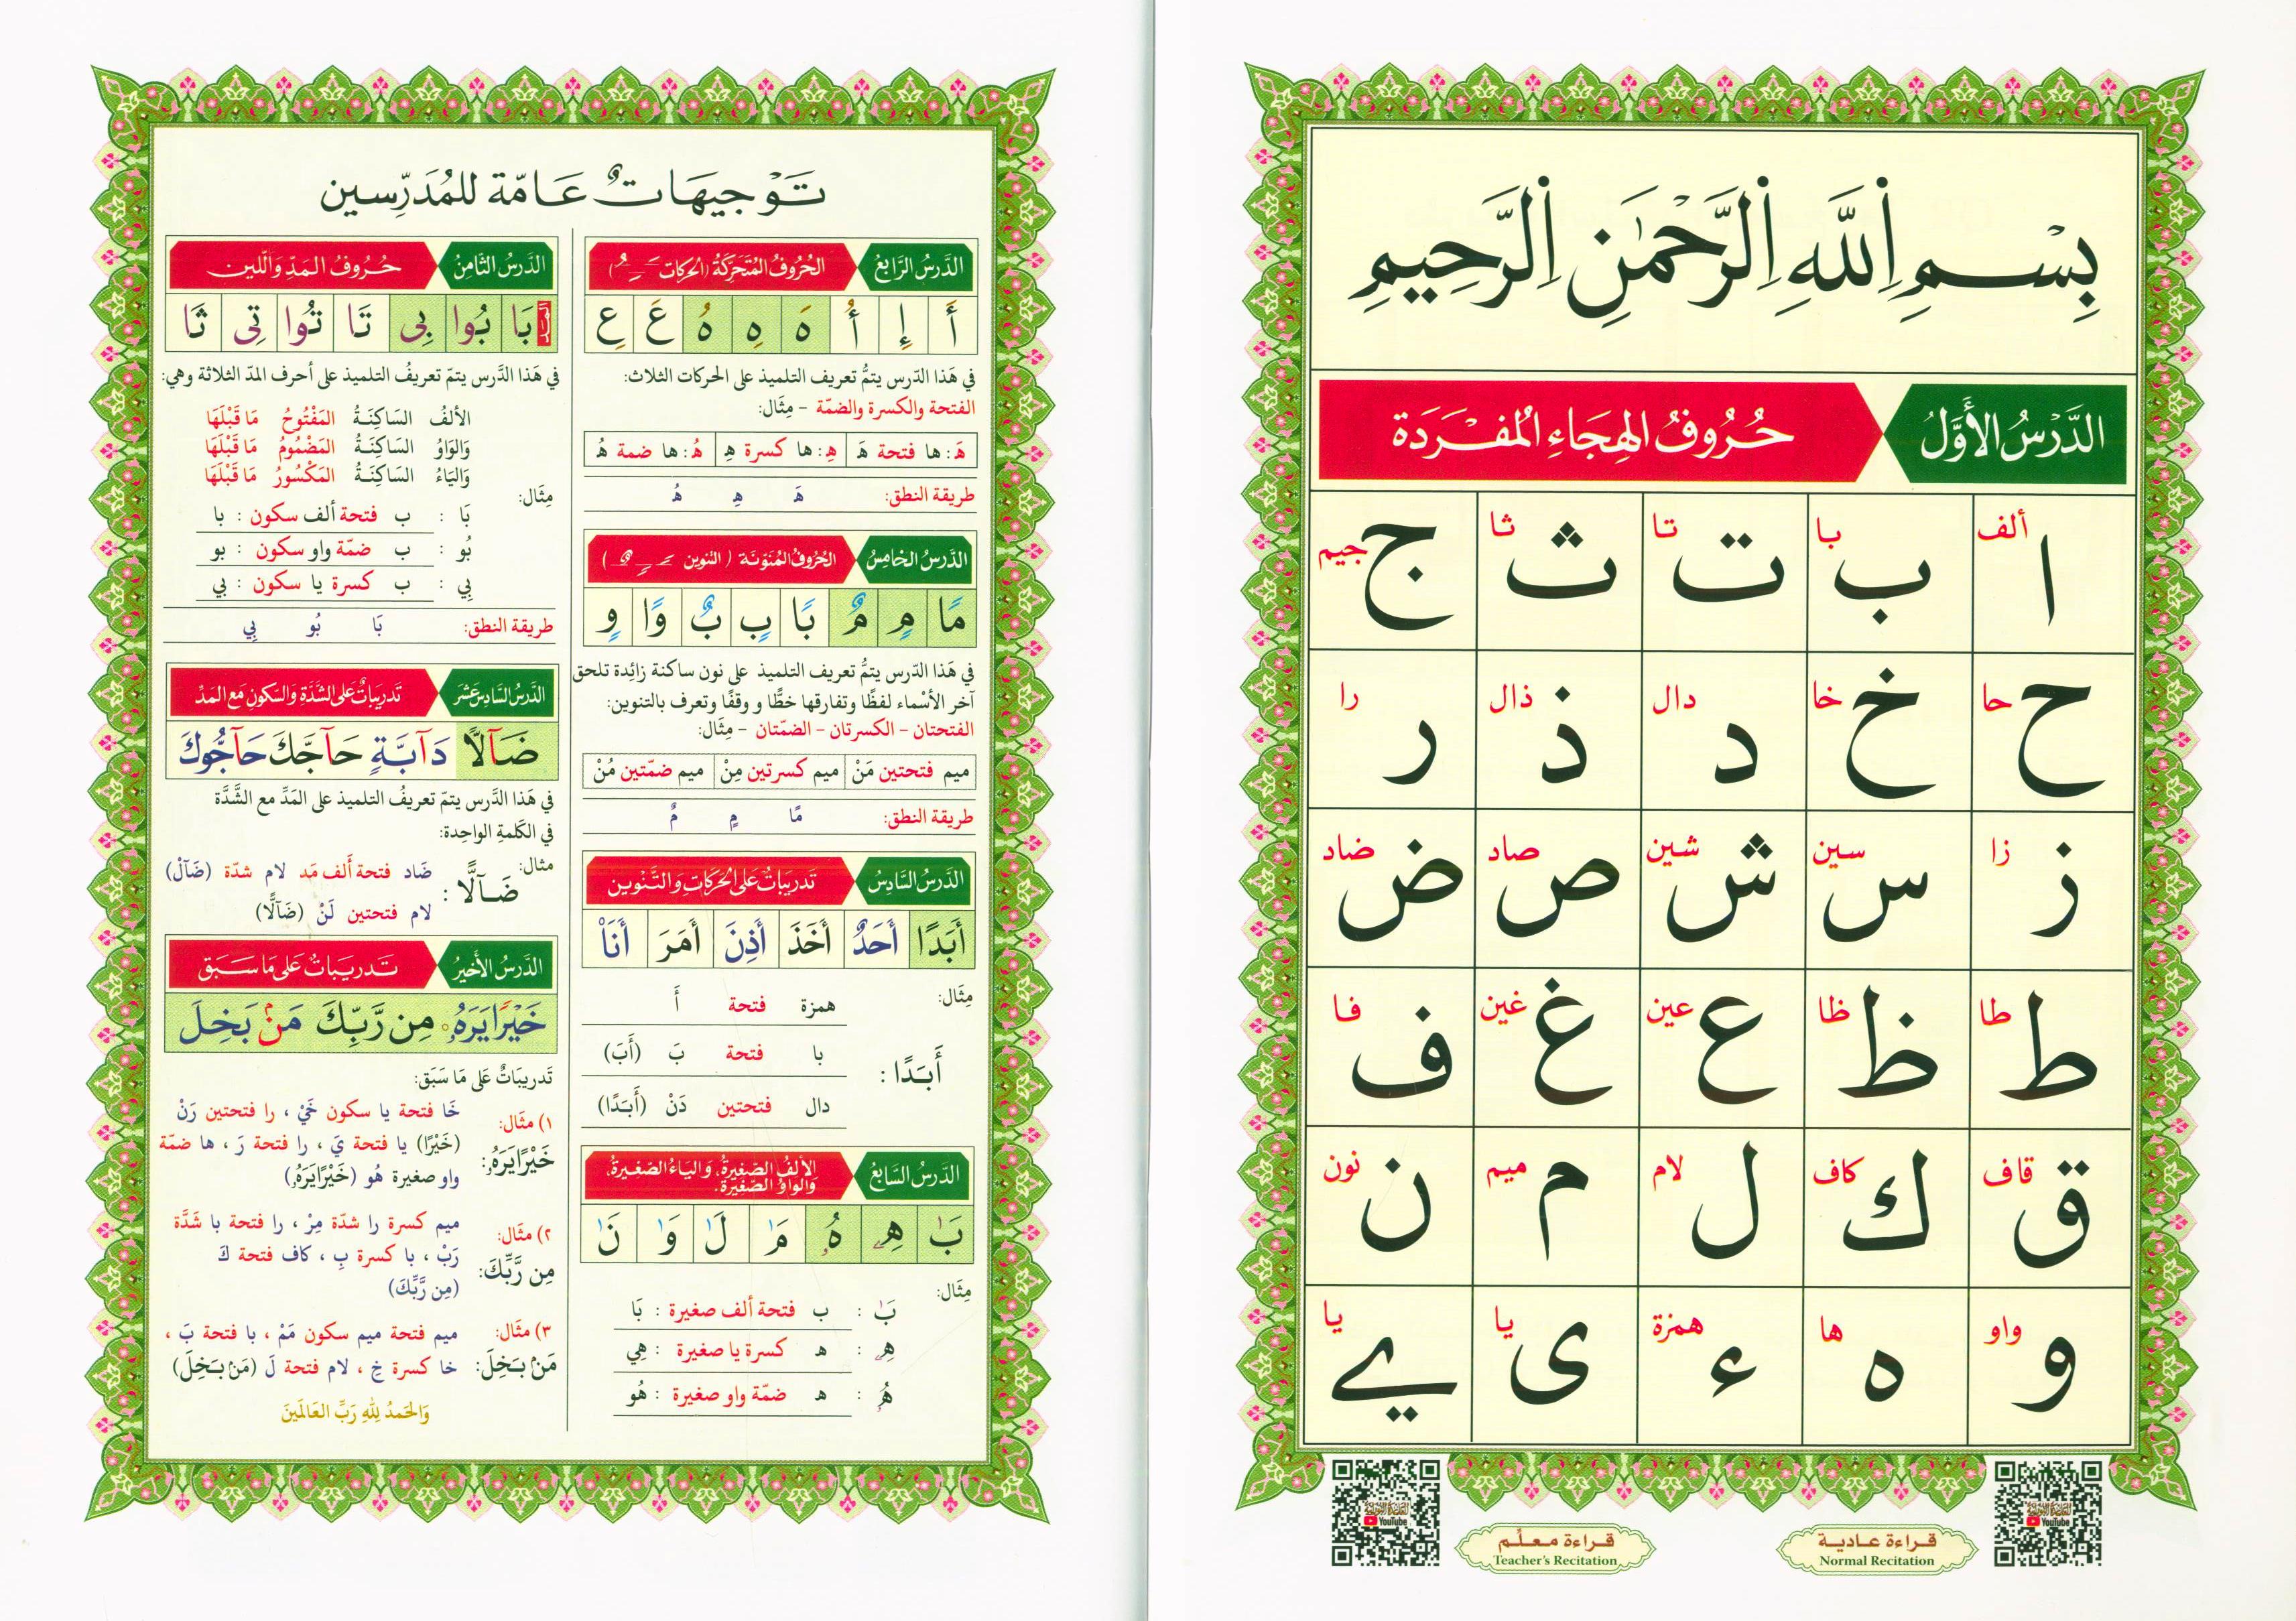 بِسْمِ اِللَّهِ اِلرَّحْمَٰنِ اِلرَّحِيمِ
الدَّرْسُ الأَوَّلُ
حُرُوفُ الهِجَاءِ المُفْرَدَة
ا ألف ب با ت تا ث ثا ج جيم
ح حا خ خا د دال ذ ذال ر را
ز زا س سين ش شين ص صاد ض ضاد
ط طا ظ ظا ع عين غ غين ف فا
ق قاف ك كاف ل لام م ميم ن نون
و واو ه ها ء همزة ى يا ے يا
YouTube
YouTube
قراءة عادية
Normal Recitation
قراءة معلّم
Teacher's Recitation
تَوْجيهَاتٌ عَامّة للمُدَرِّسين
الدَّرسُ الرَّابعُ
الحُرُوفُ المُتَحَرِّكَةُ (الحركات ـَـِـُ)
أَ إِ أُ هَ هِ هُ عَ عِ
في هَذا الدّرس يتمُّ تعريف التلميذ على الحركات الثلاث:
الفتحة والكسرة والضمّة - مِثَال:
هَـ: ها فتحة هَـ هِـ: ها كسرة هِـ هُـ: ها ضمة هُـ
طريقة النطق: هَـ هِـ هُـ
الدَّرسُ الخامِسُ
الحُرُوفُ المُنَوّنَة (التنوين ـًـٍـٌ)
مًا مٍ مٌ بًا بٍ بٌ وًا وٍ
في هَذا الدّرس يتمُّ تعريف التلميذ على نون ساكنة زائدة تلحق
آخر الأسْماء لفظًا وتفارقها خطًّا و وقفًا وتعرف بالتنوين:
الفتحتان - الكسرتان - الضمّتان - مِثَال:
ميم فتحتين مَنْ ميم كسرتين مِنْ ميم ضمّتين مُنْ
طريقة النطق: مًا مٍ مٌ
الدَّرسُ السَّادِسُ
تَدريبَاتٌ عَلى الحَرَكاتِ والتَّنْوين
أَبَدًا أَحَدٌ أَخَذَ أَذِنَ أَمَرَ أَنَا۠
مِثَال:
همزة فتحة أَ
أَبَدًا :
با فتحة بَ (أَبَ)
دال فتحتين دَنْ (أَبَدًا)
الدَّرسُ السَّابعُ
الألفُ الصَّغيرةُ، وَالياءُ الصَّغيرةُ،
والواوُ الصَّغيرَةُ.
بَٰ هِۦ هُۥ مَٰ لَٰ وَٰ نَٰ
مِثَال:
بَٰ : ب فتحة ألف صغيرة : بَا
هِۦ : هـ كسرة يا صغيرة : هِي
هُۥ : هـ ضمّة واو صغيرة : هُو
الدَّرسُ الثَّامنُ
حُرُوفُ المَدِّ وَاللّين
بَا بُوا بِى تَا تُوا تِى ثَا
في هَذا الدَّرس يتمّ تعريفُ التلميذ على أحرف المدّ الثلاثة وهي:
الألفُ السَاكِنَةُ المَفْتُوحُ مَا قَبْلَهَا
وَالوَاوُ السَاكِنَةُ المَضْمُومُ مَا قَبْلَهَا
وَاليَاءُ السَاكِنَةُ المَكْسُورُ مَا قَبْلَهَا
مِثَال:
بَا : ب فتحة ألف سكون : با
بُو : ب ضمّة واو سكون : بو
بِي : ب كسرة يا سكون : بي
طريقة النطق: بَا بُو بِي
الدَّرسُ السَّادِسَ عَشَرَ
تَدريبَاتٌ عَلى الشَّدَّةِ وَالسُّكونِ مَعَ المَدِّ
ضَآلًّا دَآبَّةٍ حَآجَّكَ حَآجُّوكَ
في هَذا الدَّرس يتمّ تعريفُ التلميذ على المَدِّ مع الشَّدَّة
في الكَلمةِ الواحِدة:
مثال:
ضَآلًّا :
ضَاد فتحة ألف مَد لام شدّة (ضَآلْ)
لام فتحتين لَنْ (ضَآلًّا)
الدَّرسُ الأخيرُ
تَدريبَاتٌ عَلى مَا سَبَق
خَيْرًا يَرَهُۥ مِن رَّبِّكَ مَنۢ بَخِلَ
تَدريبَاتٌ عَلى مَا سَبَق:
١) مثَال: خَا فتحة يا سكون خَيْ ، را فتحتين رَنْ
خَيْرًا يَرَهُۥ: (خَيْرًا) يا فتحة يَ ، را فتحة رَ ، ها ضمّة
واو صغيرة هُو (خَيْرًا يَرَهُۥ)
٢) مثَال: ميم كسرة را شدّة مِرْ ، را فتحة با شَدَّة
مِن رَّبِّكَ: رَبْ ، با كسرة بِ ، كاف فتحة كَ
(مِن رَّبِّكَ)
٣) مثَال: ميم فتحة ميم سكون مَمْ ، با فتحة بَ ،
مَنۢ بَخِلَ: خا كسرة خِ ، لام فتحة لَ (مَنۢ بَخِلَ)
وَالحَمدُ للهِ رَبِّ العَالَمينَ